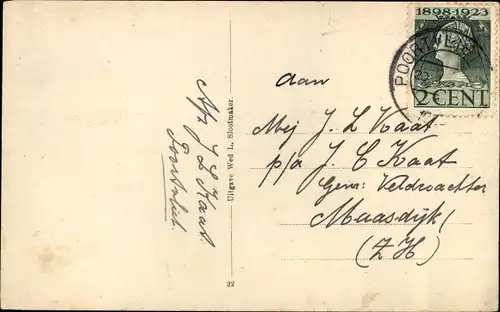 1898-1923
2 CENT
POORTVLIET
22
aan
Mej J. L Kaat
p/a J. C Kaat
Gem: Veldwachter
Maasdijk
(Z H)
Afz J L Kaat
Poortvliet.
Uitgave Wed L. Slootmaker.
22